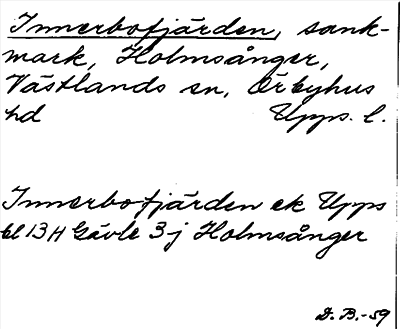 Innerbofjärden, sank-
mark, Holmsånger,
Västlands sn, Örbyhus
hd Upps. l.
Innerbofjärden ek Upps
bl 13H Gävle 3-j Holmsånger
D. B. -59